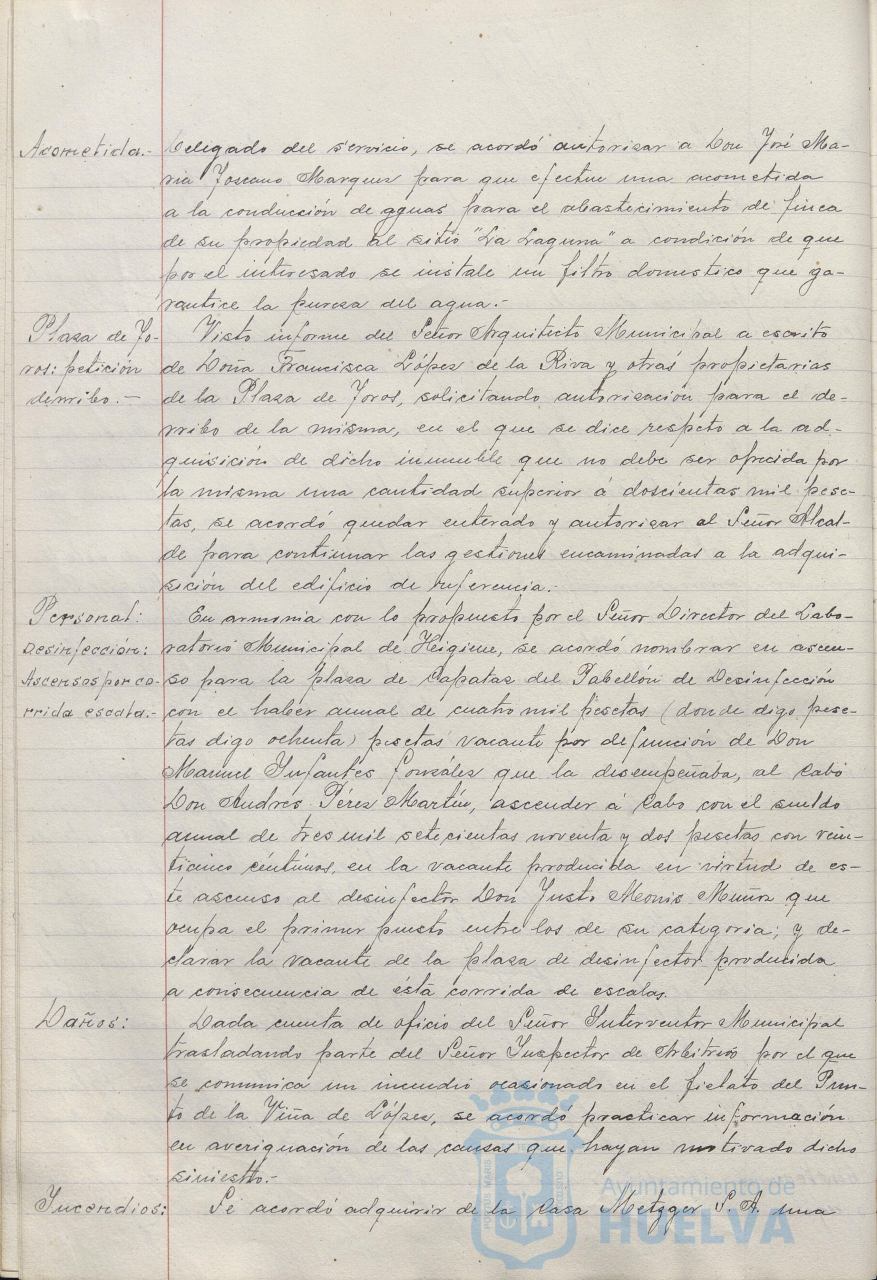 Acometida.- Delegado del servicio, se acordó autorizar a Don José Ma-
ria Toscano Marquez para que efectue una acometida
a la conducción de aguas para el abastecimiento de finca
de su propiedad al sitio "La Laguna" a condición de que
por el interesado se instale un filtro domestico que ga-
rantice la pureza del agua.-
Plaza de To- Visto informe del Señor Arquitecto Municipal a escrito
ros: petición de Doña Francisca López de la Riva y otras propietarias
derribo.- de la Plaza de Toros, solicitando autorización para el de-
rribo de la misma, en el que se dice respeto a la ad-
quisición de dicho inmueble que no debe ser ofrecida por
la misma una cantidad superior á doscientas mil pese-
tas, se acordó quedar enterado y autorizar al Señor Alcal-
de para continuar las gestiones encaminadas a la adqui-
sición del edificio de referencia.-
Personal: En armonia con lo propuesto por el Señor Director del Labo-
Desinfección: ratorio Municipal de Higiene, se acordó nombrar en ascen-
Ascensos por co- so para la plaza de Capataz del Pabellón de Desinfección
rrida escala.- con el haber anual de cuatro mil pesetas (donde digo pese-
tas digo ochenta) pesetas vacante por defunción de Don
Manuel Infantes González que la desempeñaba, al Cabo
Don Andrés Pérez Martín, ascender á Cabo con el sueldo
anual de tres mil setecientas noventa y dos pesetas con vein-
ticinco céntimos, en la vacante producida en virtud de es-
te ascenso al desinfector Don Justo Monis Muñoz que
ocupa el primer puesto entre los de su categoria; y de-
clarar la vacante de la plaza de desinfector producida
a consecuencia de ésta corrida de escalas.
Daños: Dada cuenta de oficio del Señor Interventor Municipal
trasladando parte del Señor Inspector de Arbitrios por el que
se comunica un incendio ocasionado en el fielato del Pun-
to de la Viña de López, se acordó practicar información
en averiguación de las causas que hayan motivado dicho
siniestro.-
Incendios: Se acordó adquirir de la Casa Metzger S. A. una
Ayuntamiento de
HUELVA